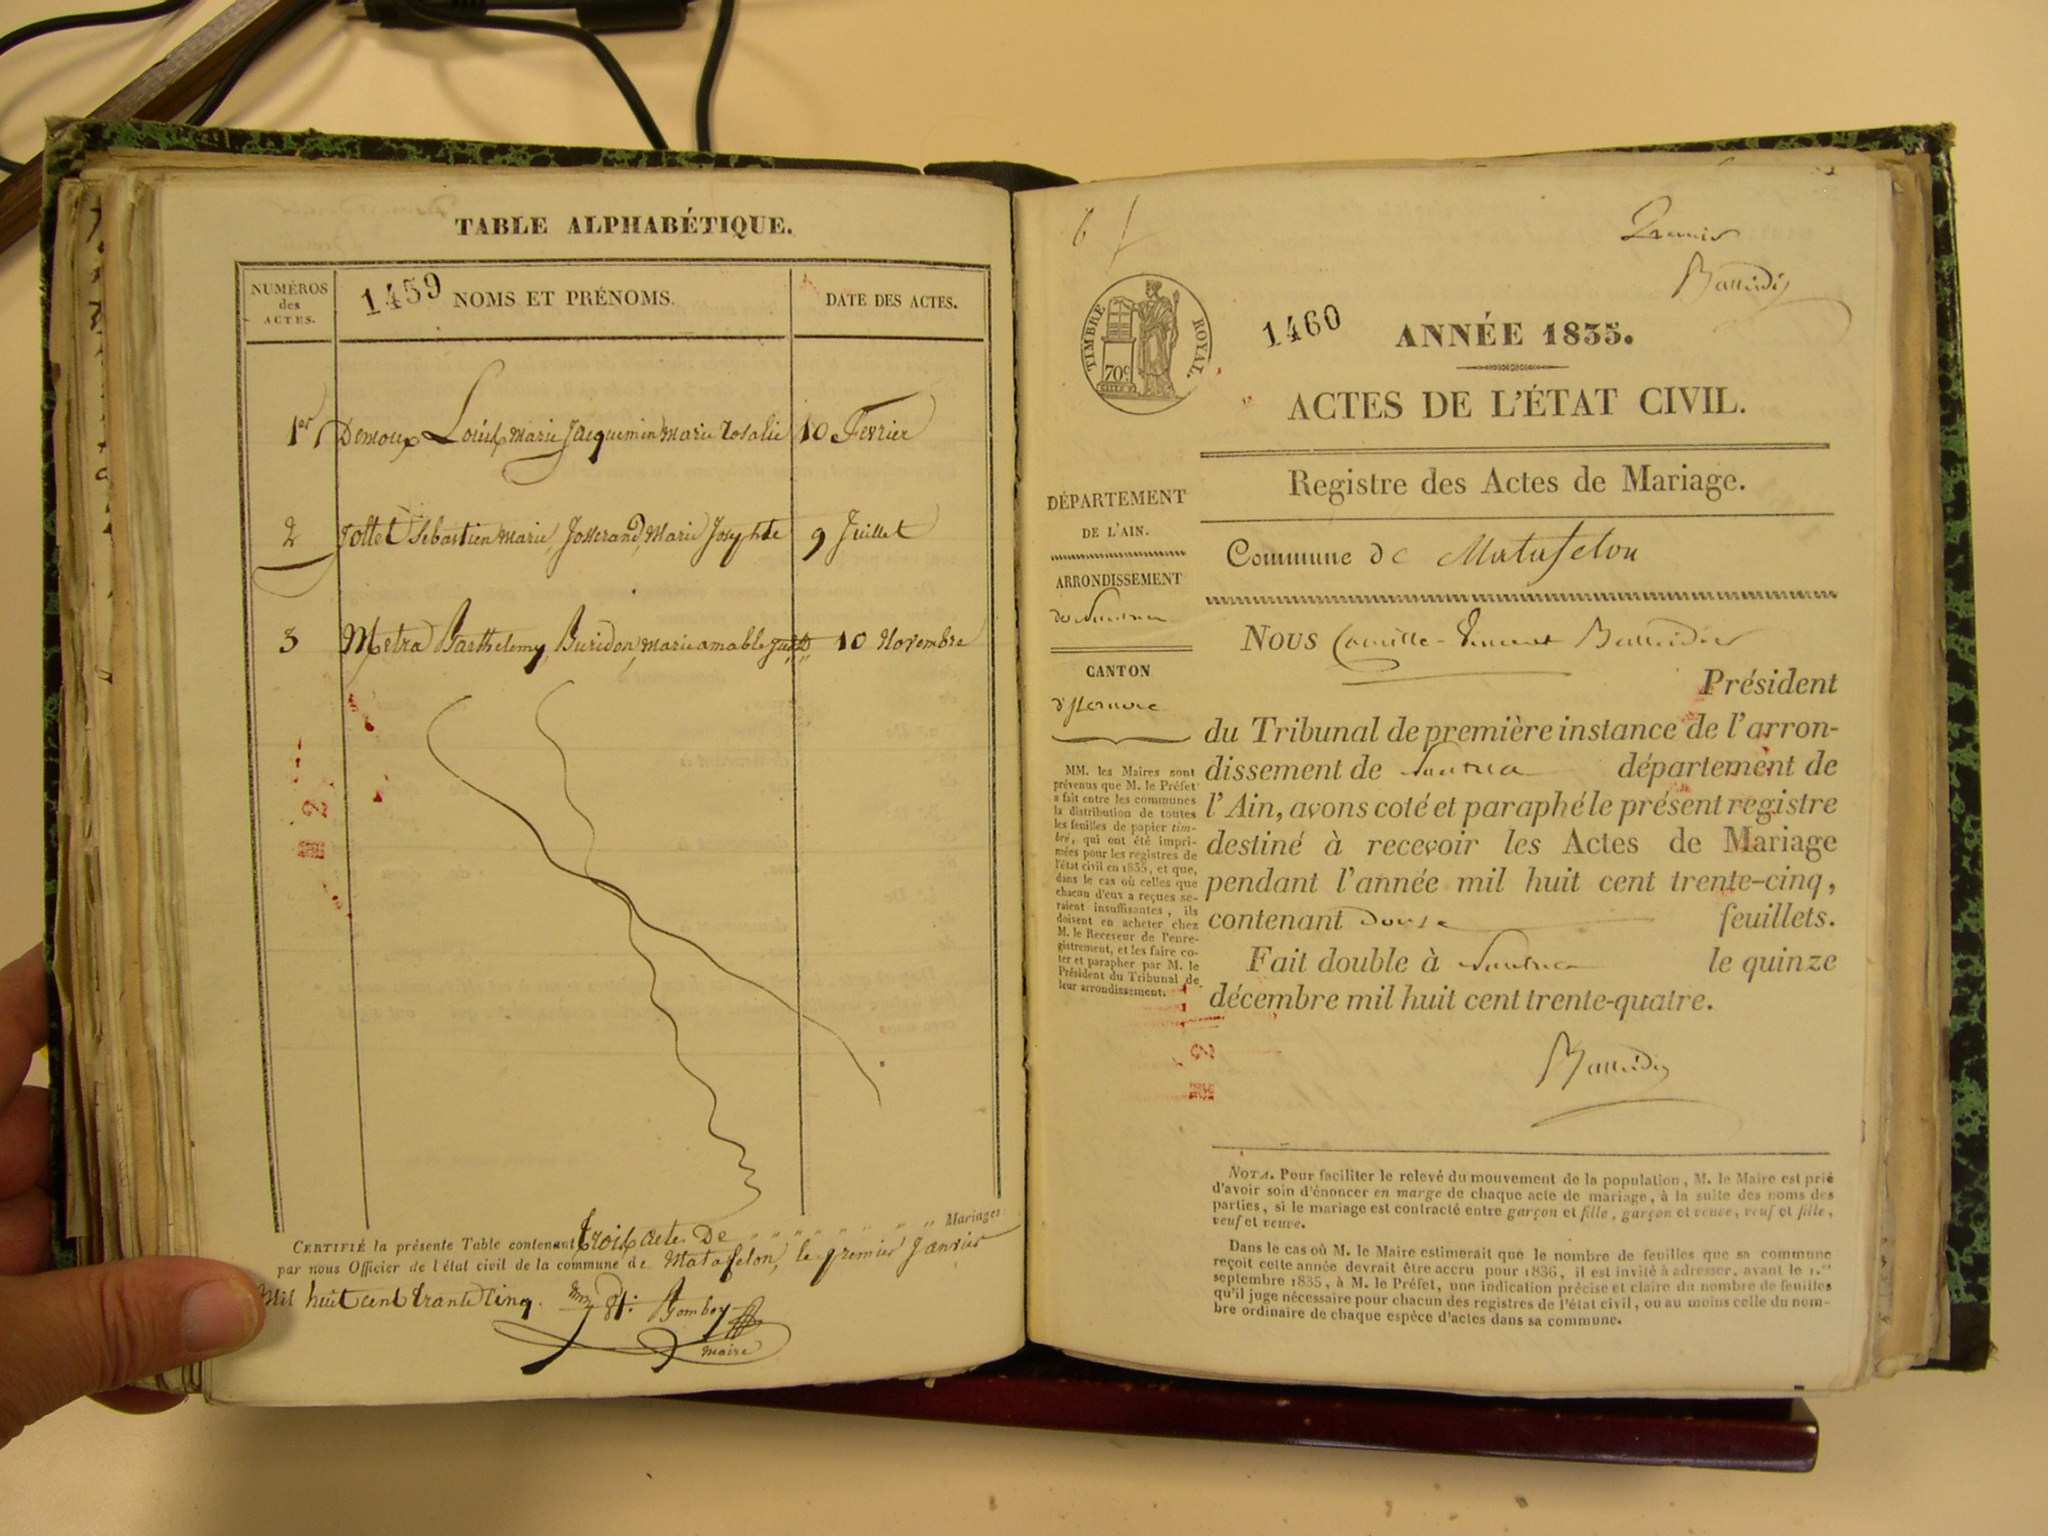 TABLE ALPHABÉTIQUE.
NUMÉROS
des
ACTES.
1459 NOMS ET PRÉNOMS.
DATE DES ACTES.
1er Demoux Louis Marie Jacquemin Marie Rosalie 10 Fevrier
2 Jottet Sebastien Marie, Josserand Marie Josephte 9 Juillet
3 Metra Barthelemy, Buridon, marie amable 10 Novembre
CERTIFIÉ la présente Table contenant trois actes De Mariages
par nous Officier de l'état civil de la commune de Matafelon, le premier Janvier
Mil huit cent trante cinq.
Gombey
maire
6
Premier
TIMBRE ROYAL.
70c
1460
ANNÉE 1835.
ACTES DE L'ÉTAT CIVIL.
Registre des Actes de Mariage.
DÉPARTEMENT
DE L'AIN.
ARRONDISSEMENT
de Nantua
CANTON
d'Izernore
MM. les Maires sont
prévenus que M. le Préfet
a fait entre les communes
la distribution de toutes
les feuilles de papier tim-
bré, qui ont été impri-
mées pour les registres de
l'état civil en 1835, et que,
dans le cas où celles que
chacun d'eux a reçues se-
raient insuffisantes, ils
doivent en acheter chez
M. le Receveur de l'enre-
gistrement, et les faire co-
ter et parapher par M. le
Président du Tribunal de
leur arrondissement.
Commune de Matafelon
NOUS Camille-Vincent
Président
du Tribunal de première instance de l'arron-
dissement de Nantua département de
l'Ain, avons coté et paraphé le présent registre
destiné à recevoir les Actes de Mariage
pendant l'année mil huit cent trente-cinq,
contenant douze feuillets.
Fait double à Nantua le quinze
décembre mil huit cent trente-quatre.
NOTA. Pour faciliter le relevé du mouvement de la population, M. le Maire est prié
d'avoir soin d'énoncer en marge de chaque acte de mariage, à la suite des noms des
parties, si le mariage est contracté entre garçon et fille, garçon et veuve, veuf et fille,
veuf et veuve.
Dans le cas où M. le Maire estimerait que le nombre de feuilles que sa commune
reçoit cette année devrait être accru pour 1836, il est invité à adresser, avant le 1.er
septembre 1835, à M. le Préfet, une indication précise et claire du nombre de feuilles
qu'il juge nécessaire pour chacun des registres de l'état civil, ou au moins celle du nom-
bre ordinaire de chaque espèce d'actes dans sa commune.